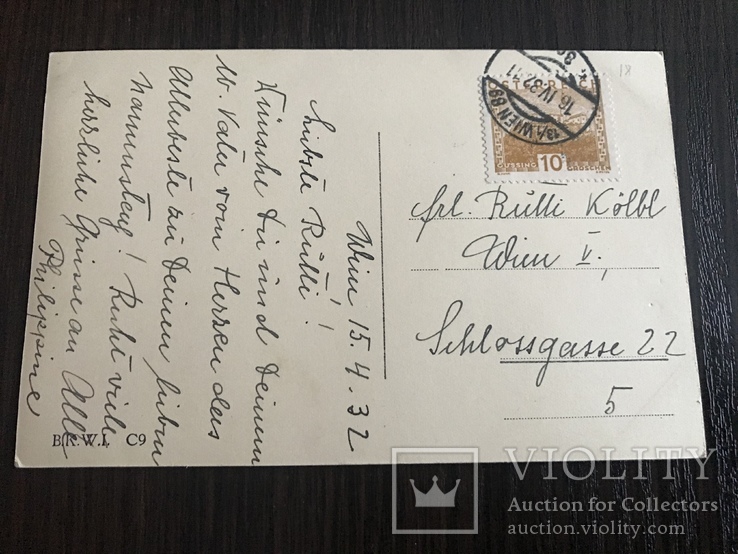 Wien 15. 4. 32
Liebste Rutti!
Wünsche Dir und Deinem
lb. Vater vom Herzen das
Allerbeste zu Deinem lieben
Namenstag! Recht viele
herzliche Grüsse an Alle
Philippine
B.K.W.I. C9
18
ÖSTERREICH
GÜSSING 10 GROSCHEN
13/1 WIEN 89
16. IV. 32 11
Frl. Rutti Kölbl
Wien V.,
Schlossgasse 22
5
VIOLITY
Auction for Collectors
auction.violity.com